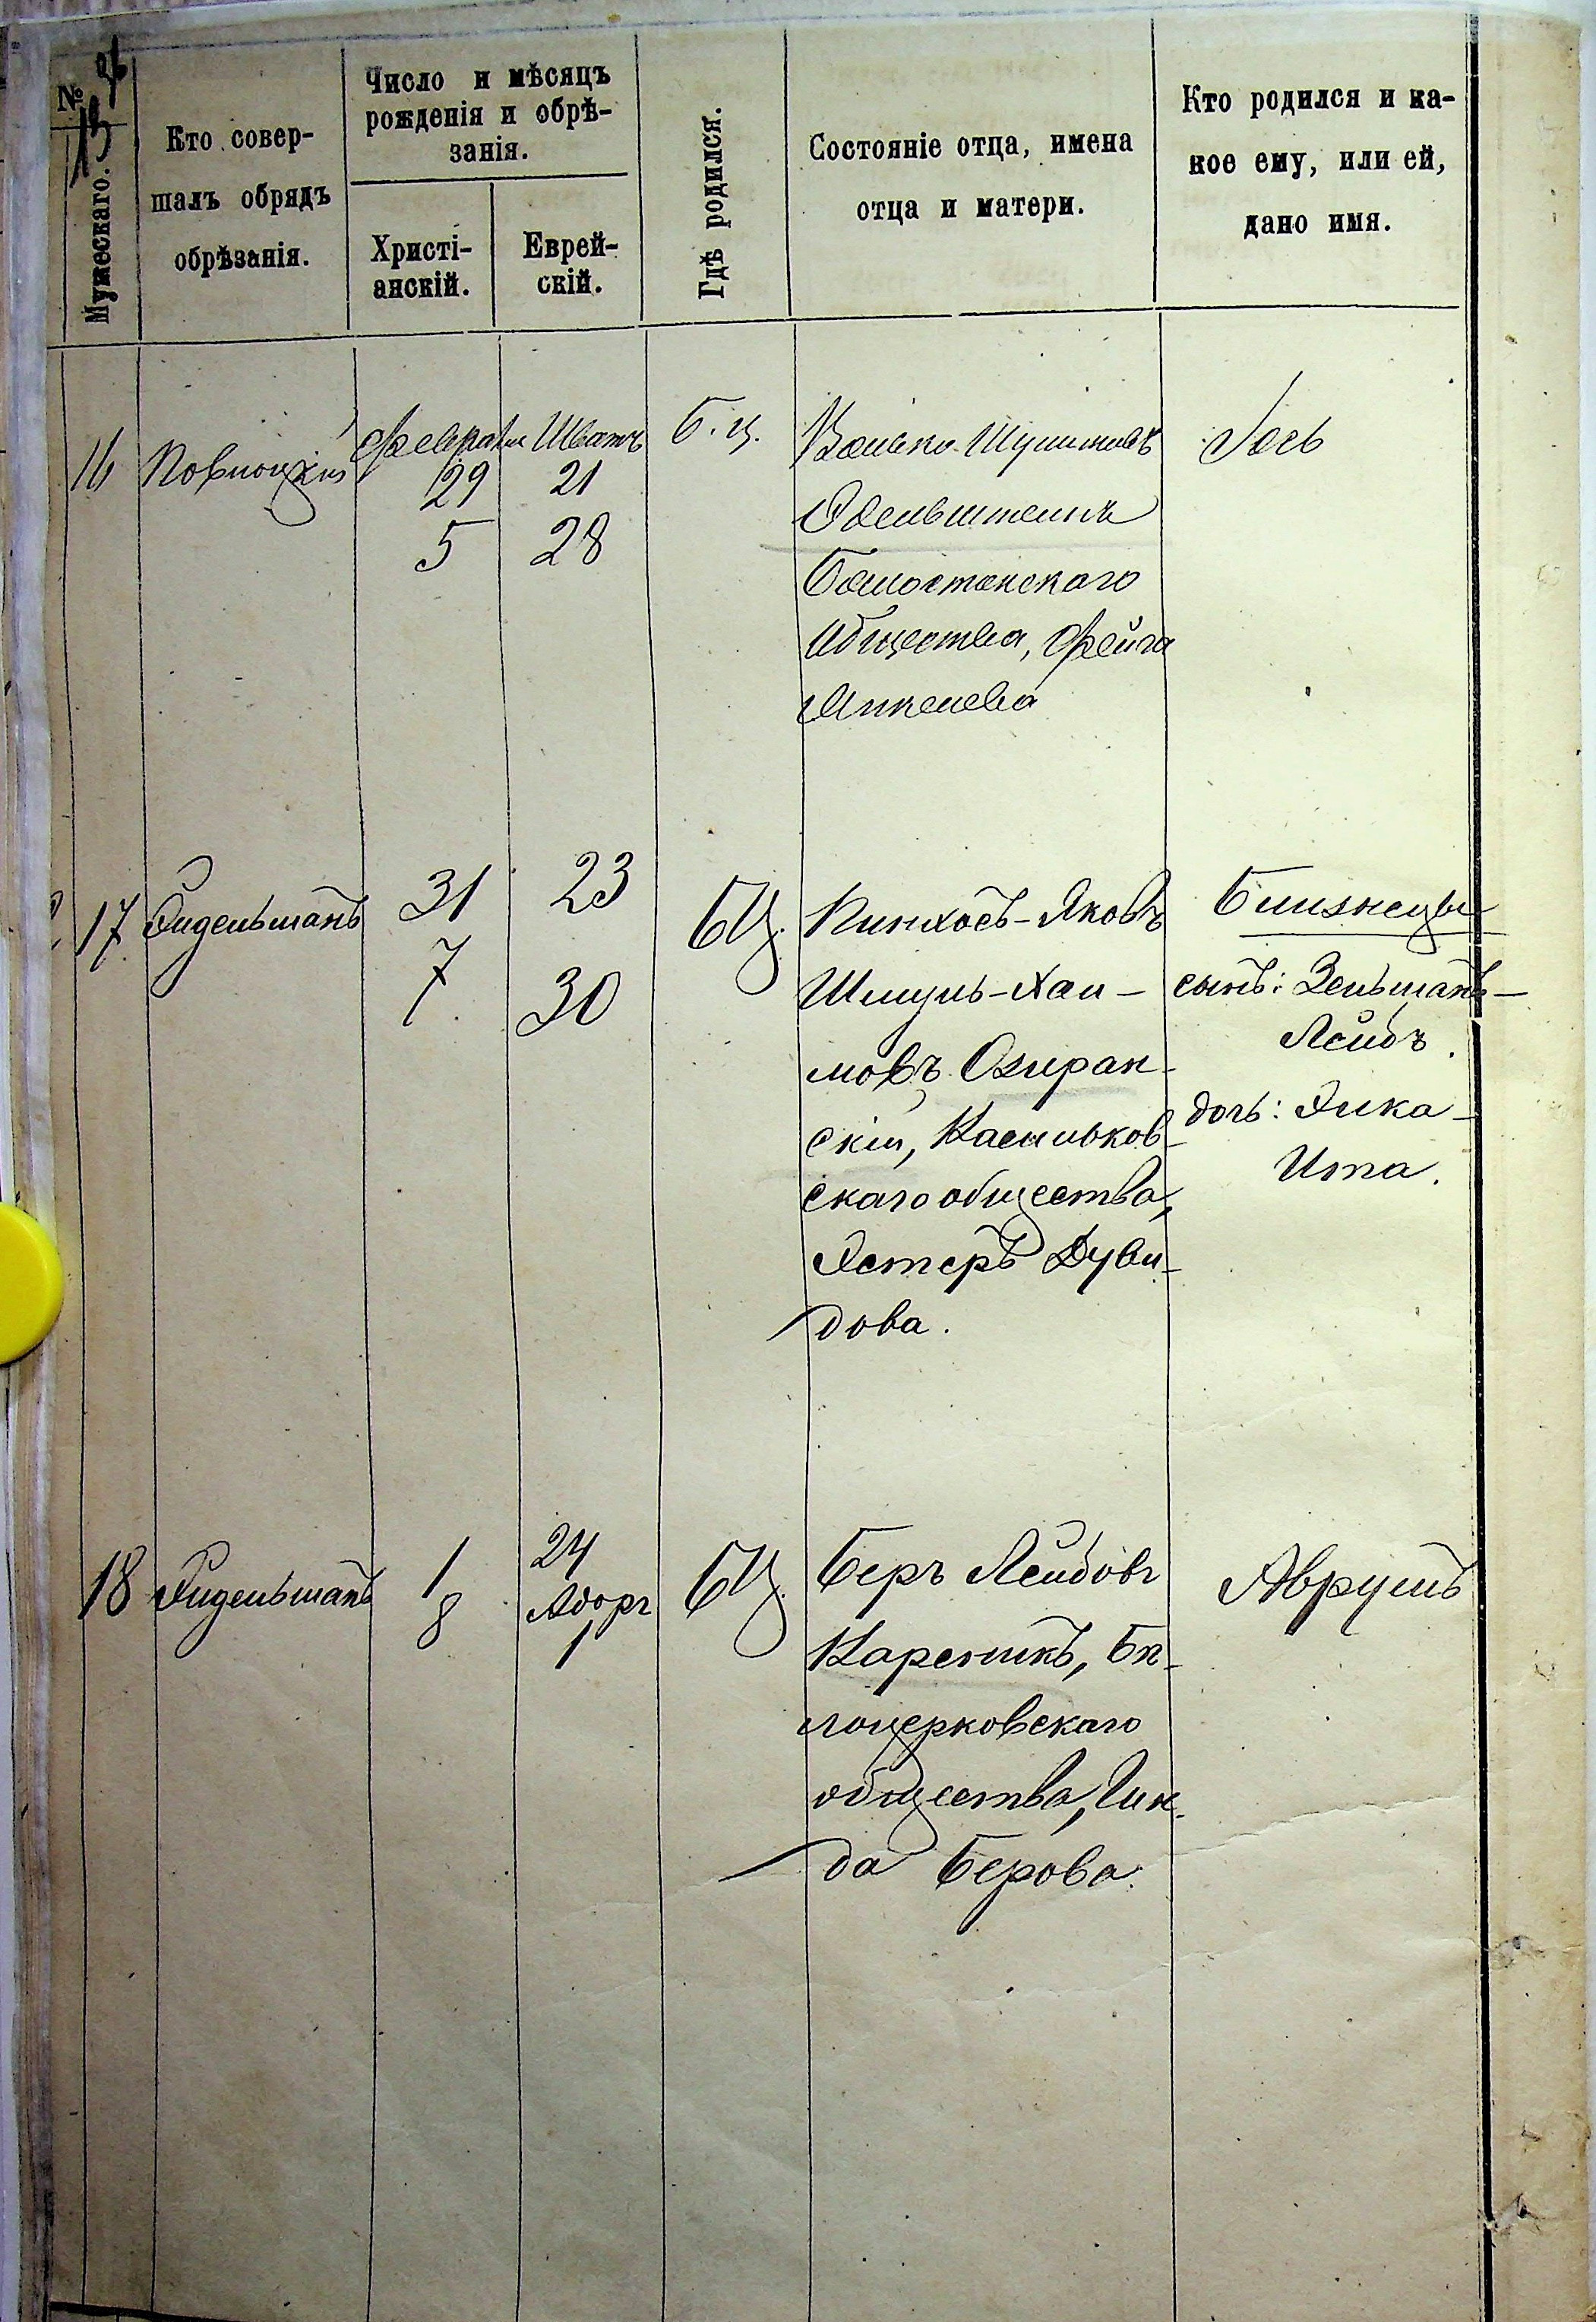 №
Мужескаго.
Кто совер-
шалъ обрядъ
обрѣзанія.
Число и мѣсяцъ
рожденія и обрѣ-
занія.
Христі-
анскій.
Еврей-
скій.
Гдѣ родился.
Состояніе отца, имена
отца и матери.
Кто родился и ка-
кое ему, или ей,
дано имя.
16
Февраля
29
5
Шватъ
21
28
Б. ц.
Эдельштейнъ
общества, Фейга
Янкелева
Іось
17
Эидельманъ
31
7
23
30
БЦ.
Пинхосъ-Яковъ
Шмуль-Хаи-
мовъ Озиран-
скій, Васильков-
скаго общества,
Эстеръ Дуви-
дова.
Близнецы
сынъ: Зельманъ-
Лейбъ.
дочь: Элка-
Ита.
18
Эидельманъ
1
8
24
Адоръ
1
БЦ.
Беръ Лейбовъ
Кареникъ, Бѣ-
лоцерковскаго
общества, Гин-
да Берова.
Аврумъ